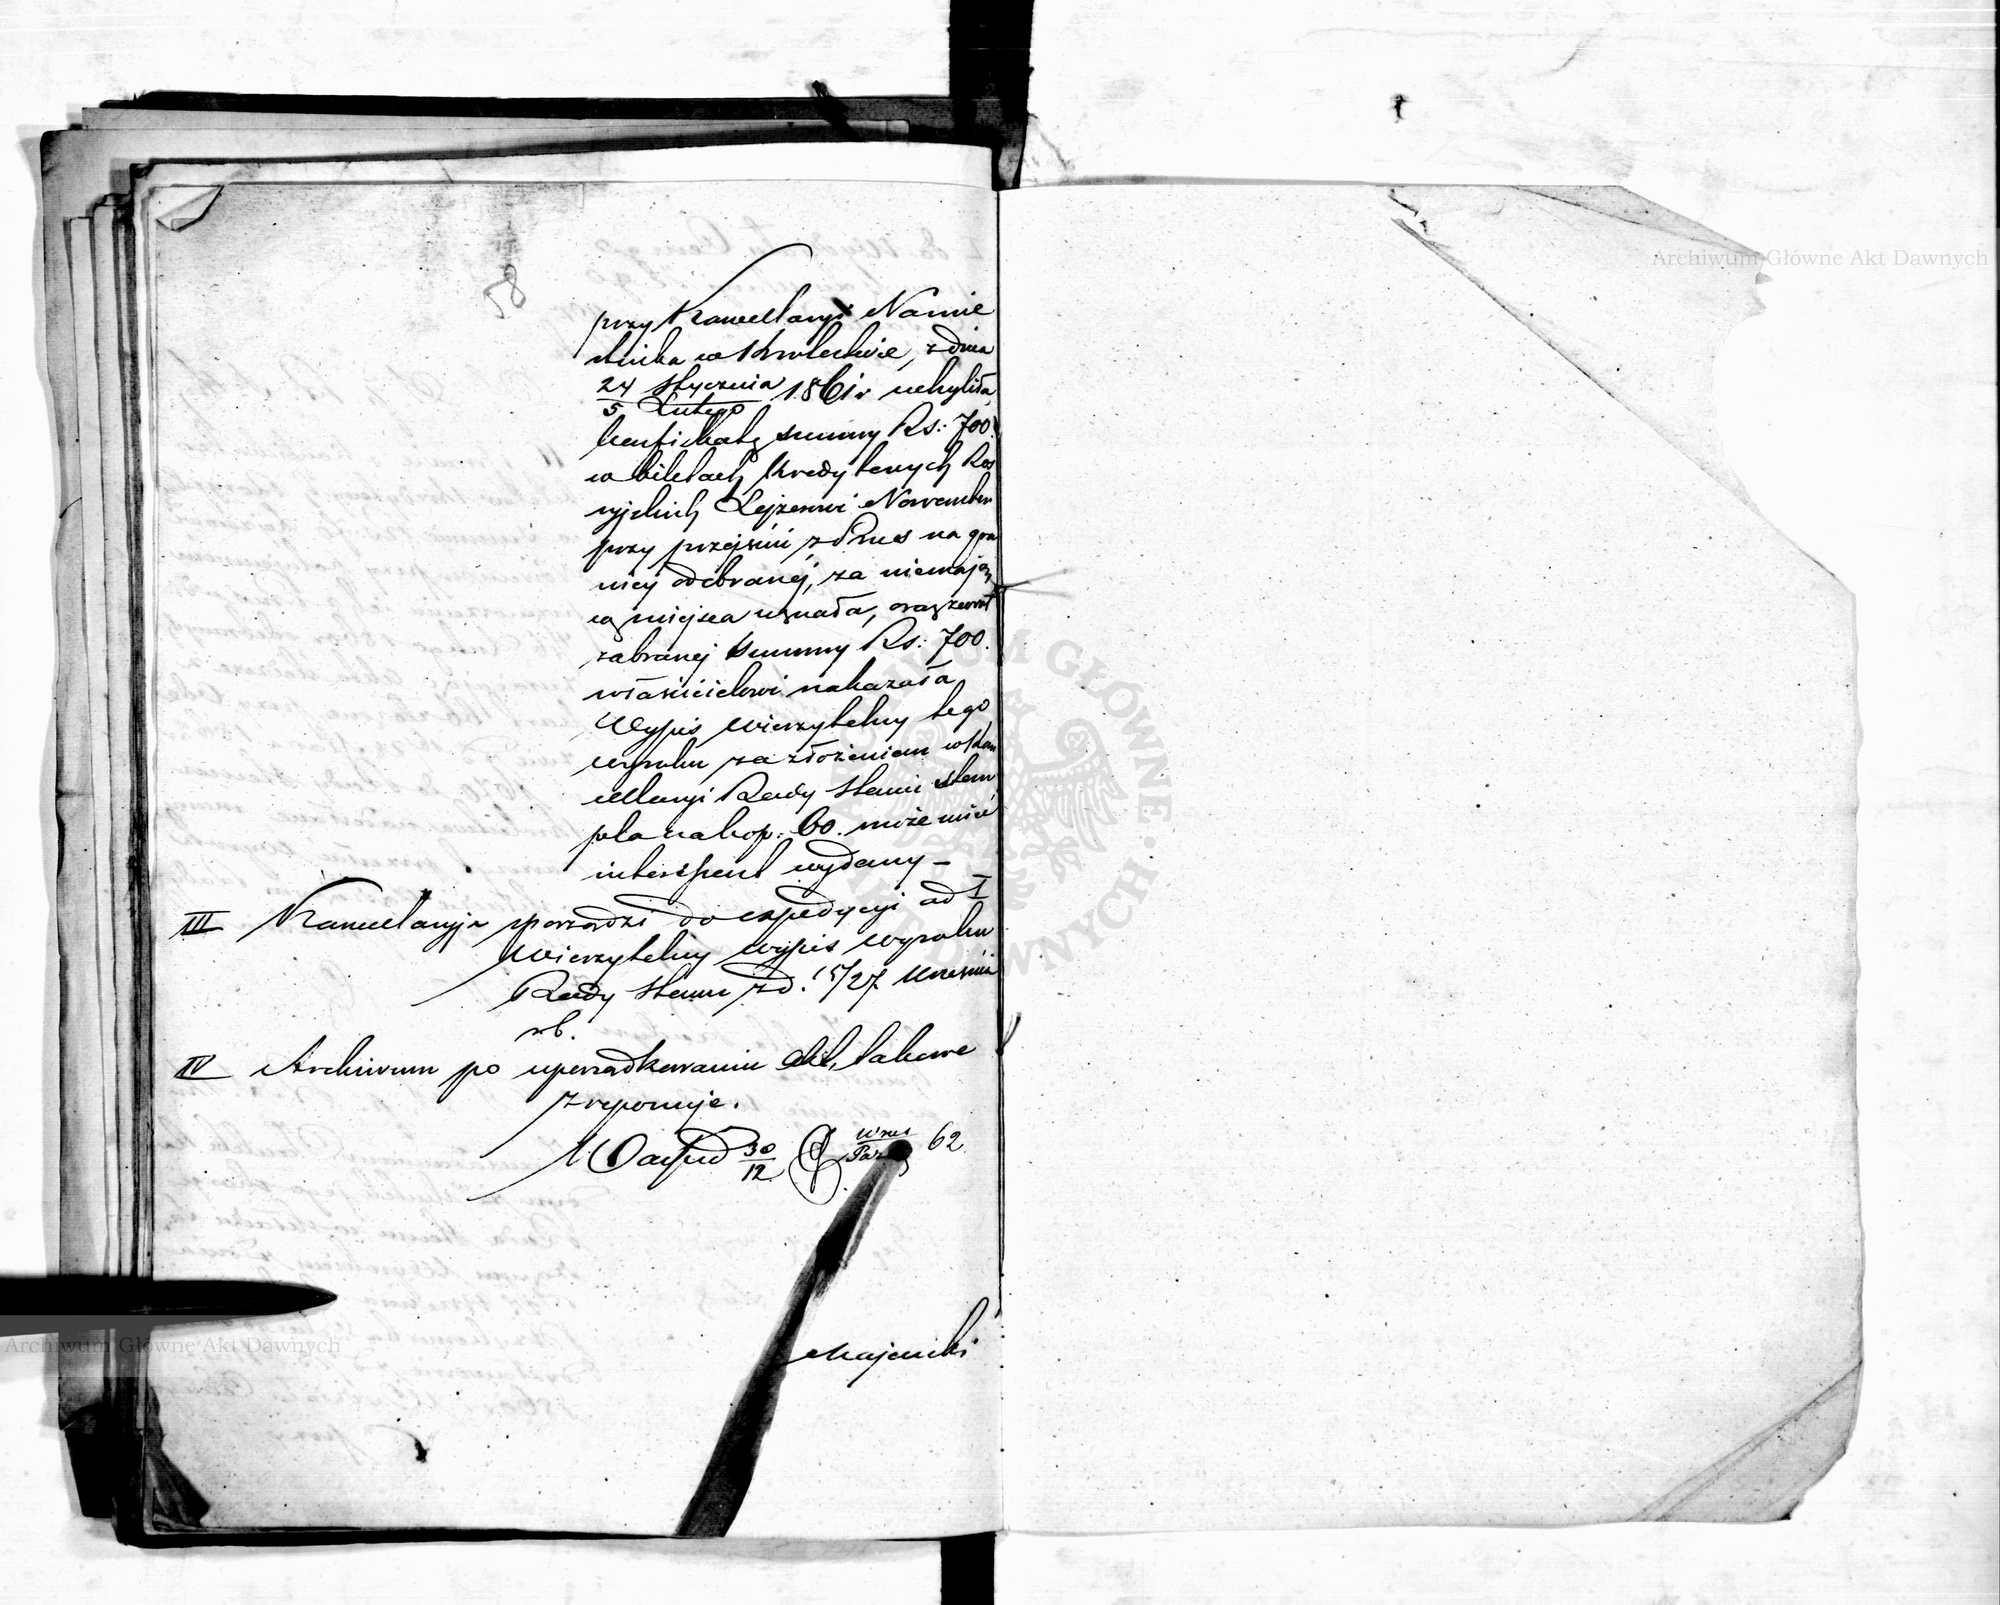 58
przy Kancellaryi Namie
stnika w Królestwie, z dnia
24 Stycznia
5 Lutego 1861 r uchyliła,
konfiskatę summy Rs: 700.
w biletach kredytowych Ros
syjskich Lejzerowi
przy przejściu z Prus na gra
nicy odebranej, za niemają
cą miejsca uznała, oraz zwrot
zabranej summy Rs: 700.
właścicielowi nakazała
Wypis wierzytelny tego
wyroku za złożeniem w Kan
cellaryi Rady Stanu stem
pla na kop: 60. może mieć
interesent wydany –
III Kancellaryja sporządzi do expedycyi ad I
wierzytelny wypis wyroku
Rady Stanu z d. 15/27 Września
rb.
IV Archiwum po uporządkowaniu akt, takowe
zreponuje.
30 Wrześ
12 Paź 62
Archiwum Główne Akt Dawnych
Archiwum Główne Akt Dawnych